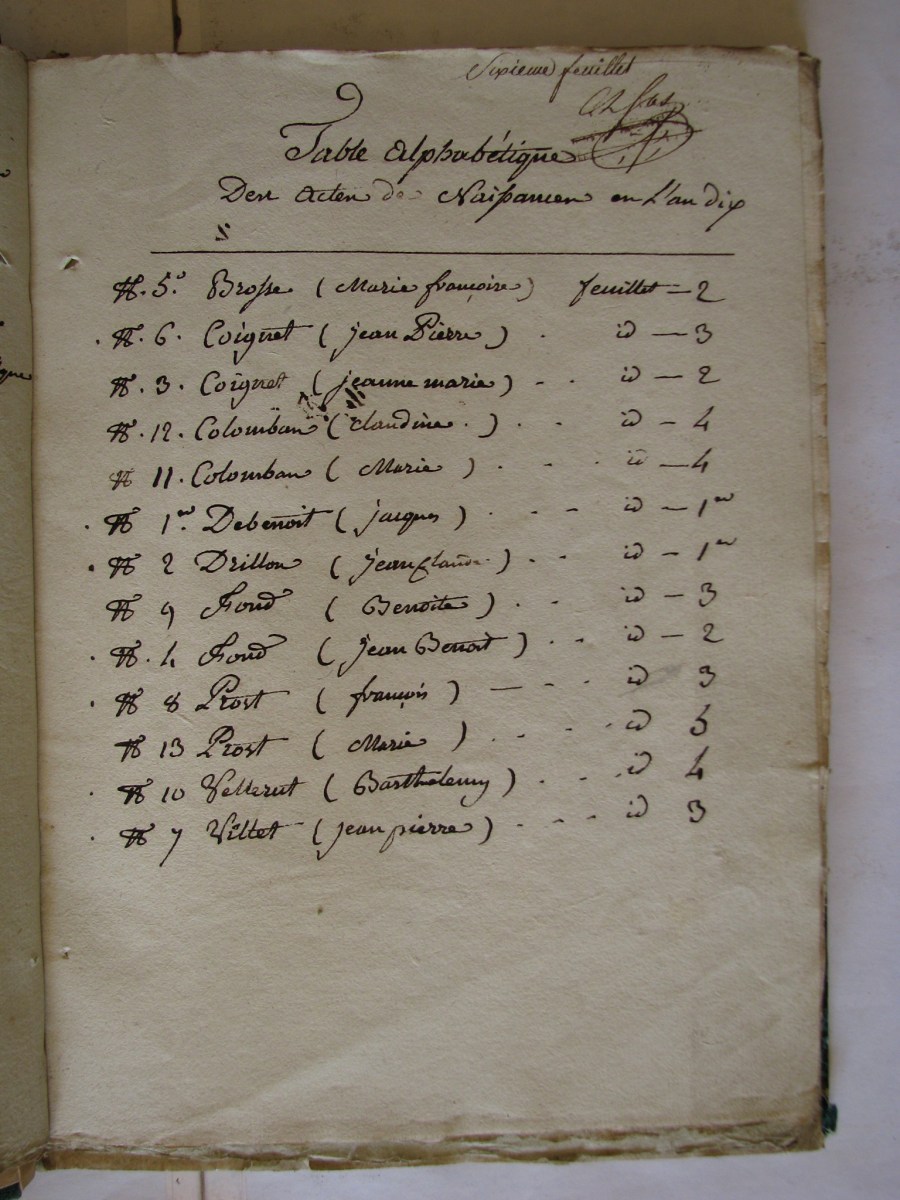 Sixieme feuillet
Table alphabétique
Des actes de Naissances en L'an dix
N. 5. Brosse (Marie françoise) feuillet = 2
N. 6. Coignet (jean Pierre) . id — 3
N. 3. Coignet (jeanne marie) - . id — 2
N. 12. Colomban (claudine.) . - id — 4
N 11. Colomban (Marie) . - . id — 4
N 1er Debenoit (jacques) . - - id — 1er
N 2 Drillon (jean claude) . - id — 1er
N 9 Fond (Benoite) . - id — 3
N. 4 Fond (jean Benoit) . - id — 2
N 8 Prost (françois) — - - id 3
N 13 Prost (Marie) . - - - id 5
N 10 Vellerut (Barthelemy) . - - id 4
N 7 Villet (jean pierre) . - - id 3